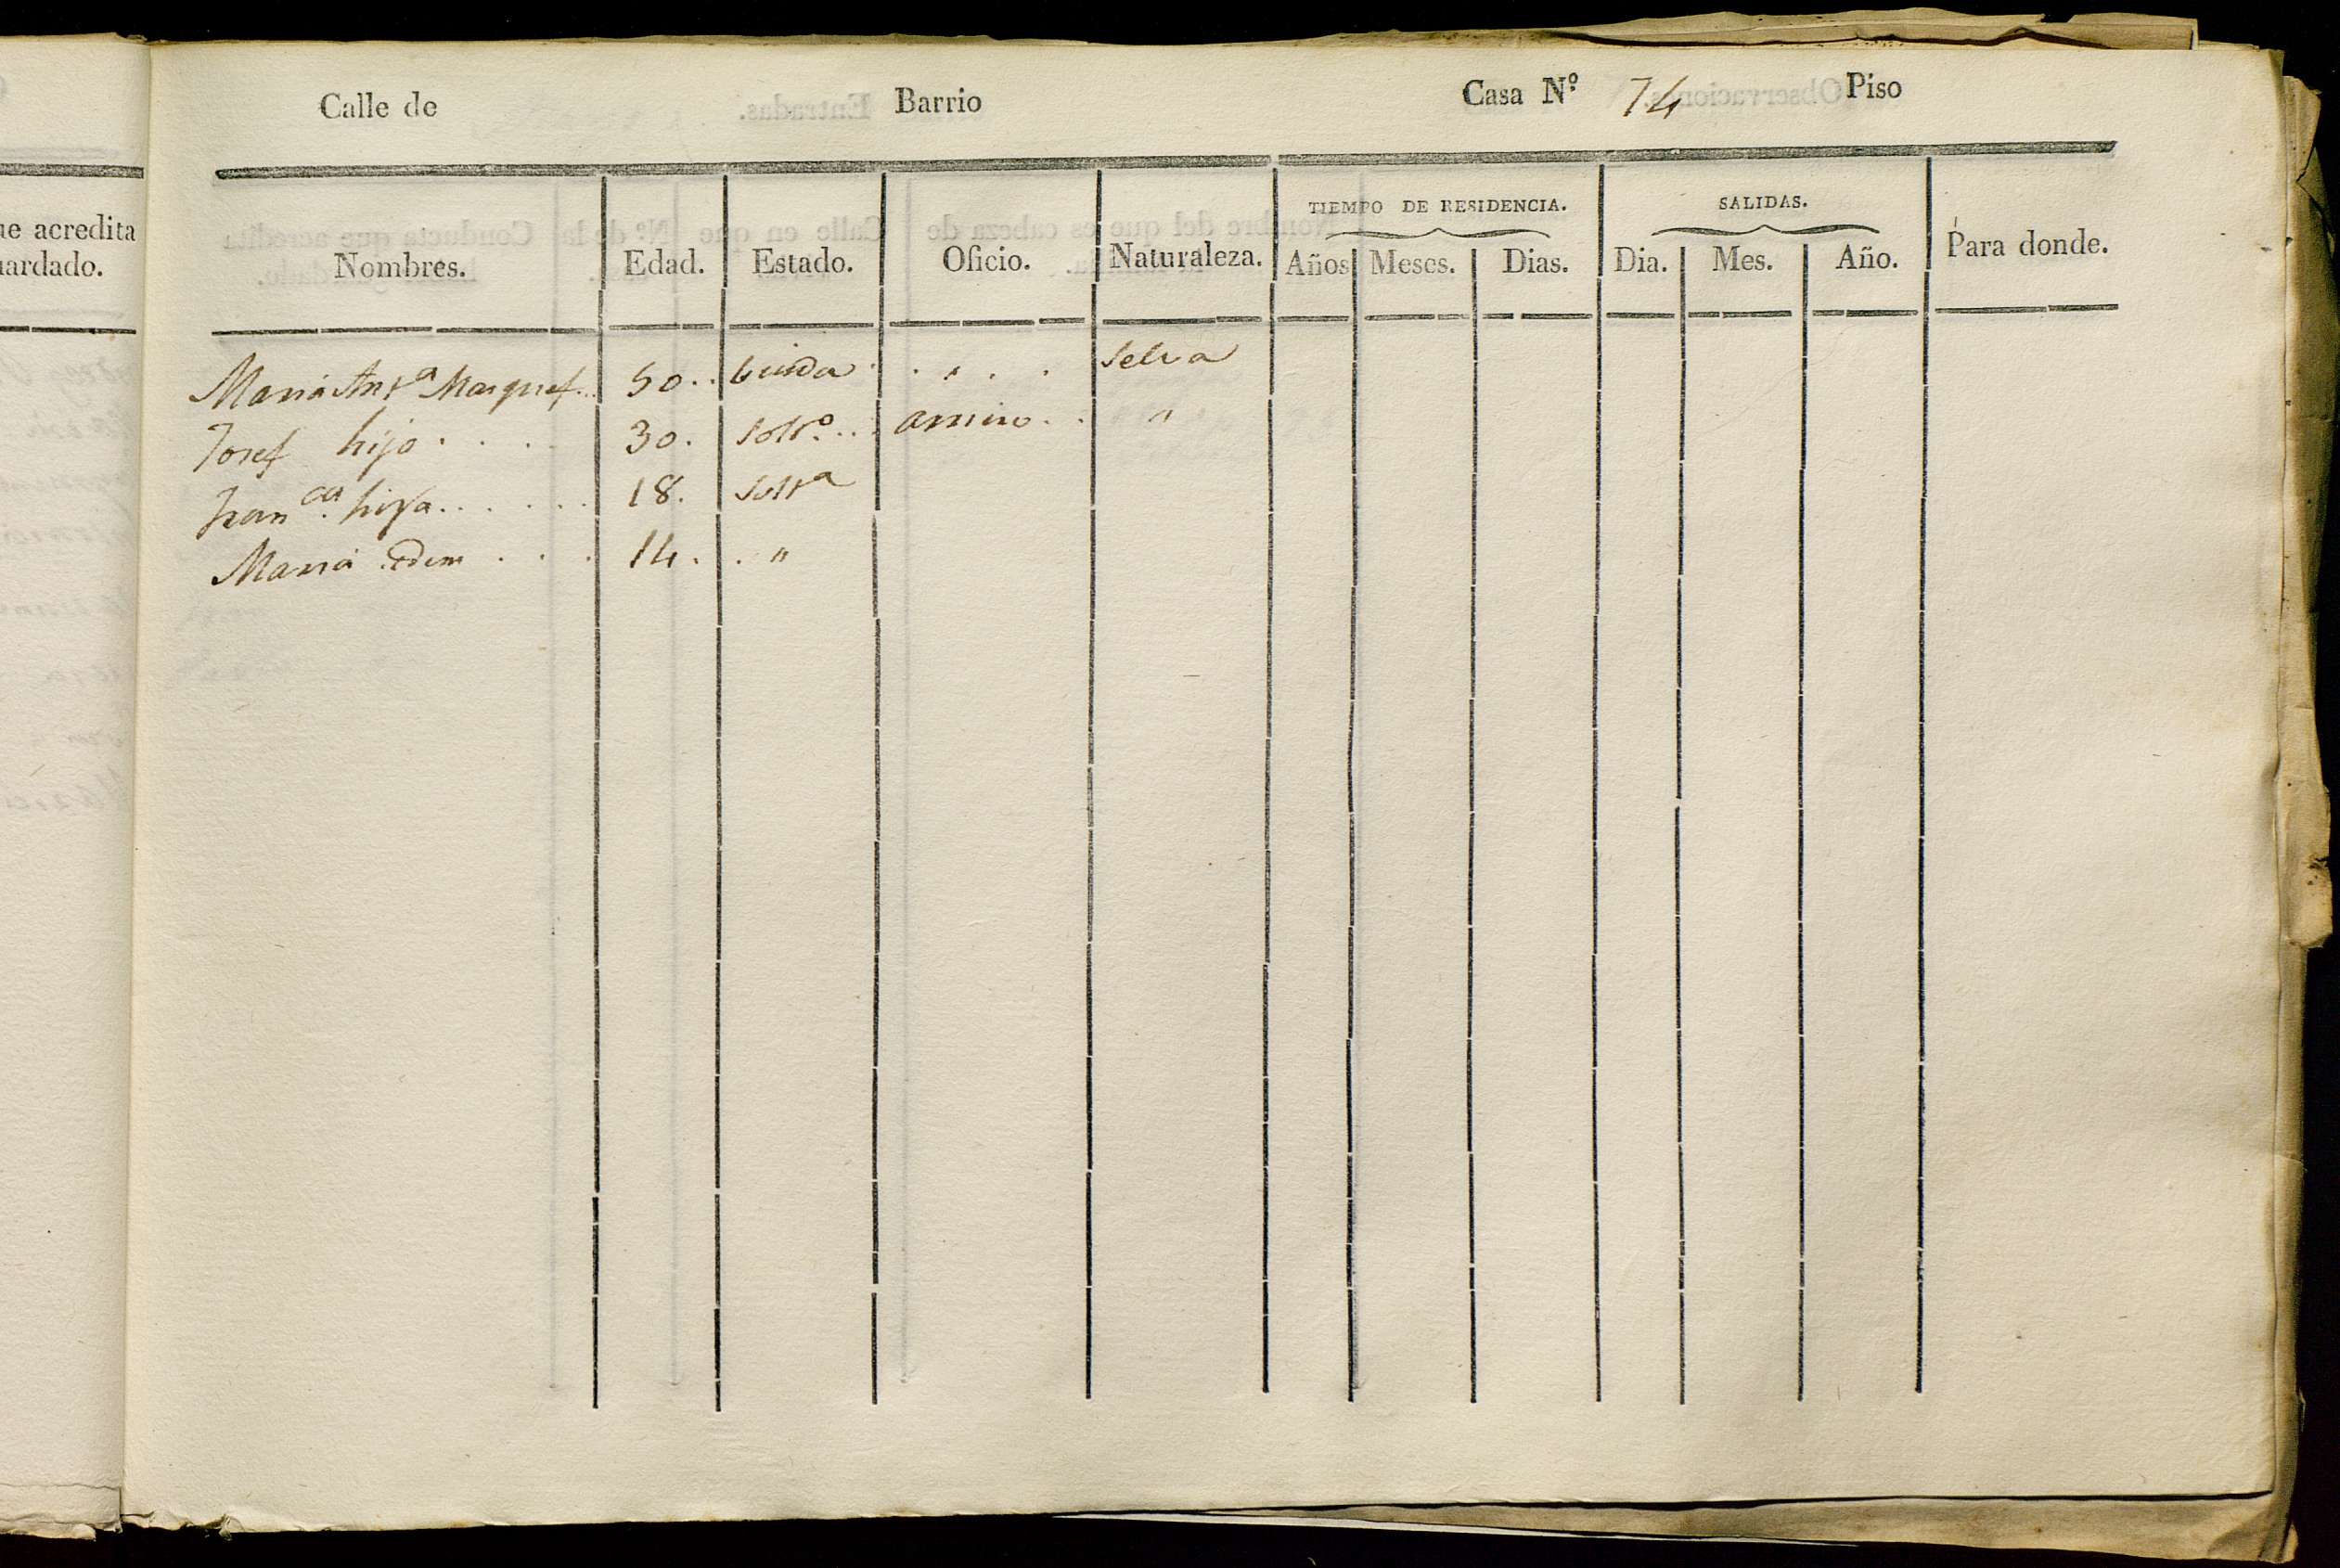 Calle de Barrio Casa Nº 74 Piso
ue acredita
uardado.
TIEMPO DE RESIDENCIA. SALIDAS.
Nombres. Edad. Estado. Oficio. Naturaleza. Años Meses. Dias. Dia. Mes. Año. Para donde.
Maria Antª Marquef... 50.. biuda . . . . . Selva
Josef hijo . . . . 30. solt.º .. arriero . . "
Fran.ca hija . . . . . . 18. soltª
Maria idem . . . 14. . "